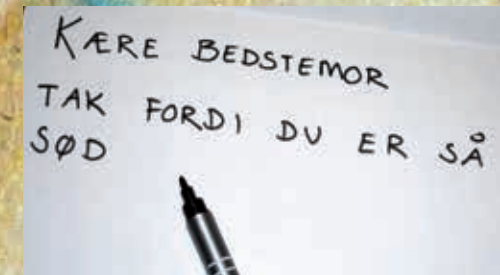 KÆRE BEDSTEMOR
TAK FORDI DU ER SÅ
SØD